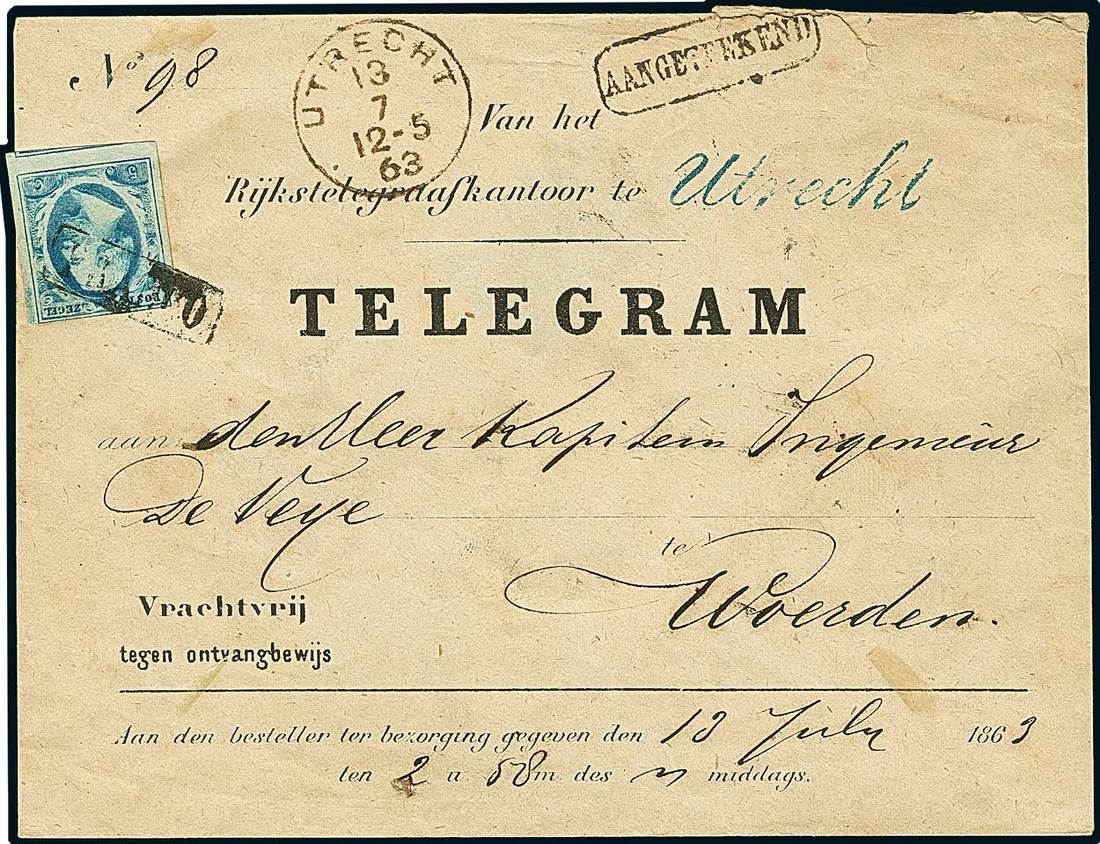 No 98
UTRECHT
13
7
12-5
63
AANGETEEKEND
Van het
Rijkstelegraafkantoor te Utrecht
TELEGRAM
aan den Heer Kapitein Ingenieur
De Veye
te
Woerden.
Vrachtvrij
tegen ontvangbewijs
Aan den besteller ter bezorging gegeven den 13 July 1863
ten 2 u 58 m des n middags.
POST ZEGEL
5 5